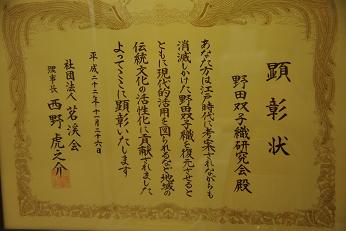 顕彰状
野田双子織研究会殿
あなた方は江戸時代に考案されながらも
消滅しかけた野田双子織を復元させると
ともに現代的活用を図られるなど地域の
伝統文化の活性化に貢献されました
よってここに顕彰いたします
平成二十二年十一月二十六日
社団法人茗渓会
理事長 西野虎之介